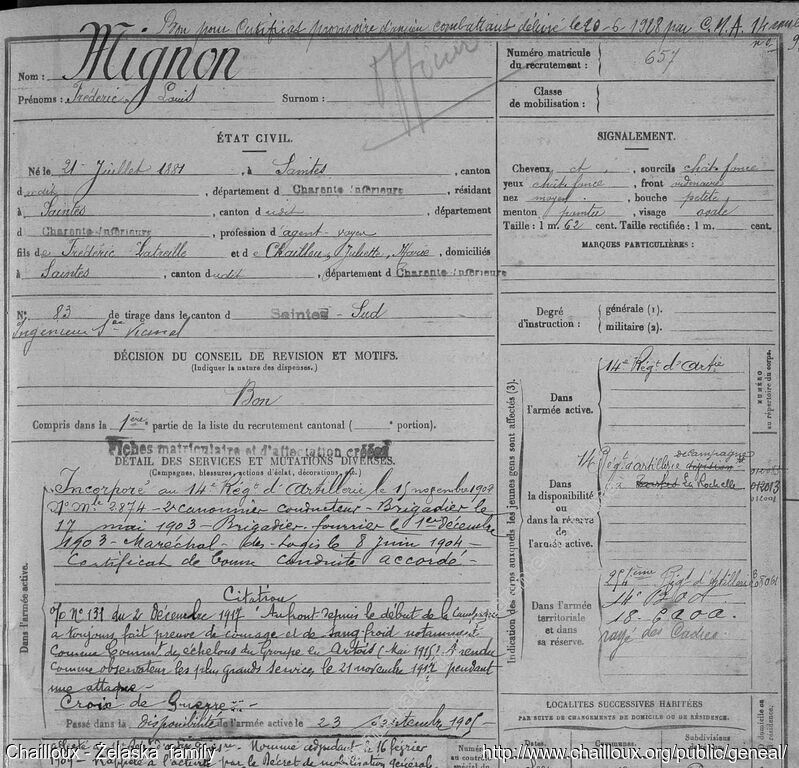 Bon pour Certificat provisoire d'ancien combattant délivré le 20-6-1928 par C.M.A. 14
officier
Nom : Mignon
Prénoms : Frédéric Louis Surnom :
Numéro matricule du recrutement : 657
Classe de mobilisation :
ÉTAT CIVIL.
Né le 21 Juillet 1881, à Saintes, canton
dudit, département d Charente Inférieure, résidant
à Saintes, canton dudit, département
d Charente Inférieure, profession d'agent-voyer
fils de Frédéric Latreille et de Chailloux, Juliette, Marie, domiciliés
à Saintes, canton dudit, département d Charente Inférieure
N° 83 de tirage dans le canton d Saintes - Sud
Ingénieur Vicinal
SIGNALEMENT.
Cheveux ct, sourcils chat. foncé
yeux chat. foncé, front ordinaire
nez moyen, bouche petite
menton pointu, visage ovale
Taille : 1 m. 62 cent. Taille rectifiée : 1 m. cent.
MARQUES PARTICULIÈRES :
Degré d'instruction : générale (1).
militaire (2).
DÉCISION DU CONSEIL DE REVISION ET MOTIFS.
(Indiquer la nature des dispenses.)
Bon
Compris dans la 1ère partie de la liste du recrutement cantonal ( portion).
Fiches matriculaire et d'affectation créées
DÉTAIL DES SERVICES ET MUTATIONS DIVERSES.
(Campagnes, blessures, actions d'éclat, décorations, etc.)
Dans l'armée active.
Incorporé au 14e Régt d'Artillerie le 15 novembre 1902
N° Mle 2874 - 2e canonnier conducteur - Brigadier le
17 mai 1903 - Brigadier-fourrier le 1er décembre
1903 - Maréchal-des-Logis le 8 juin 1904 -
Certificat de bonne conduite accordé -
Citation
O/o N° 131 du 2 Décembre 1917 "Au front depuis le début de la Campagne
a toujours fait preuve de courage et de sang froid notamment
comme Commt d'échelons du Groupe en Artois (Mai 1915). A rendu
comme observateur les plus grands services, le 21 novembre 1917 pendant
une attaque -
Croix de Guerre
Passé dans la disponibilité de l'armée active le 23 septembre 1905
Nommé adjudant le 16 février
Rappelé à l'activité par le Décret de mobilisation Générale
Indication des corps auxquels les jeunes gens sont affectés (3).
NUMÉRO au répertoire du corps.
Dans l'armée active.
14e Régt d'Artie
Dans la disponibilité ou dans la réserve de l'armée active.
14 Régt d'artillerie de campagne
à La Rochelle
Dans l'armée territoriale et dans sa réserve.
254ème Régt d'Artillerie
rayé des Cadres
LOCALITÉS SUCCESSIVES HABITÉES
PAR SUITE DE CHANGEMENTS DE DOMICILE OU DE RÉSIDENCE.
Numéro au
Subdivision
domicile ou
Chailloux - Żelaska family
http://www.chailloux.org/public/geneal/